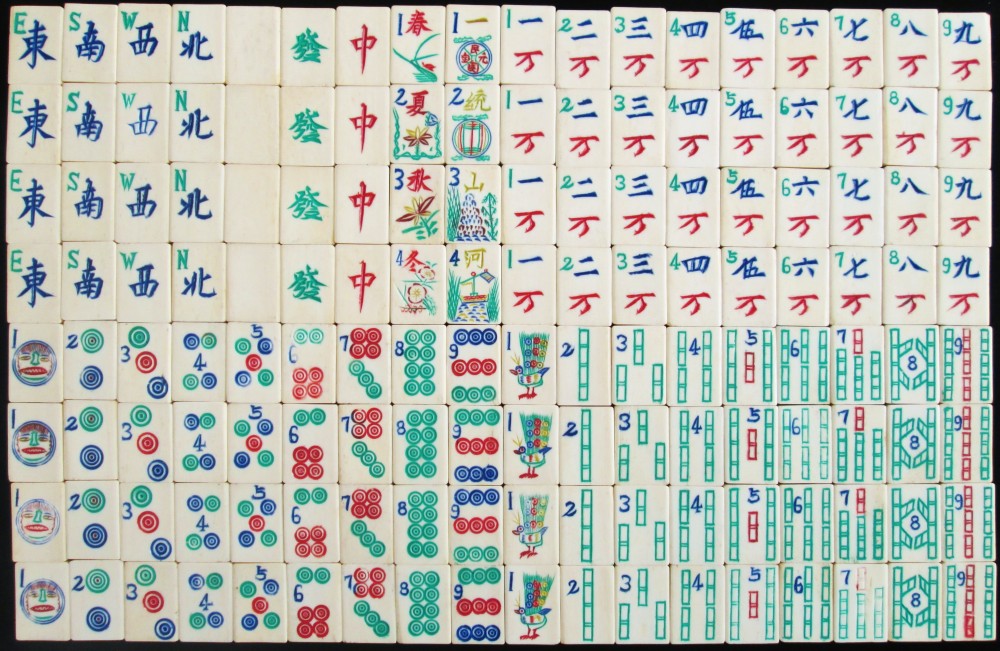 E 東 S 南 W 西 N 北 發 中 1 春 1 一 1 一 2 二 3 三 4 四 5 伍 6 六 7 七 8 八 9 九
万 万 万 万 万 万 万 万 万
E 東 S 南 W 西 N 北 發 中 2 夏 2 统 1 一 2 二 3 三 4 四 5 伍 6 六 7 七 8 八 9 九
万 万 万 万 万 万 万 万 万
E 東 S 南 W 西 N 北 發 中 3 秋 3 山 1 一 2 二 3 三 4 四 5 伍 6 六 7 七 8 八 9 九
万 万 万 万 万 万 万 万 万
E 東 S 南 W 西 N 北 發 中 4 冬 4 河 1 一 2 二 3 三 4 四 5 伍 6 六 7 七 8 八 9 九
万 万 万 万 万 万 万 万 万
1 2 3 4 5 6 7 8 9 1 2 3 4 5 6 7 8 9
1 2 3 4 5 6 7 8 9 1 2 3 4 5 6 7 8 9
1 2 3 4 5 6 7 8 9 1 2 3 4 5 6 7 8 9
1 2 3 4 5 6 7 8 9 1 2 3 4 5 6 7 8 9